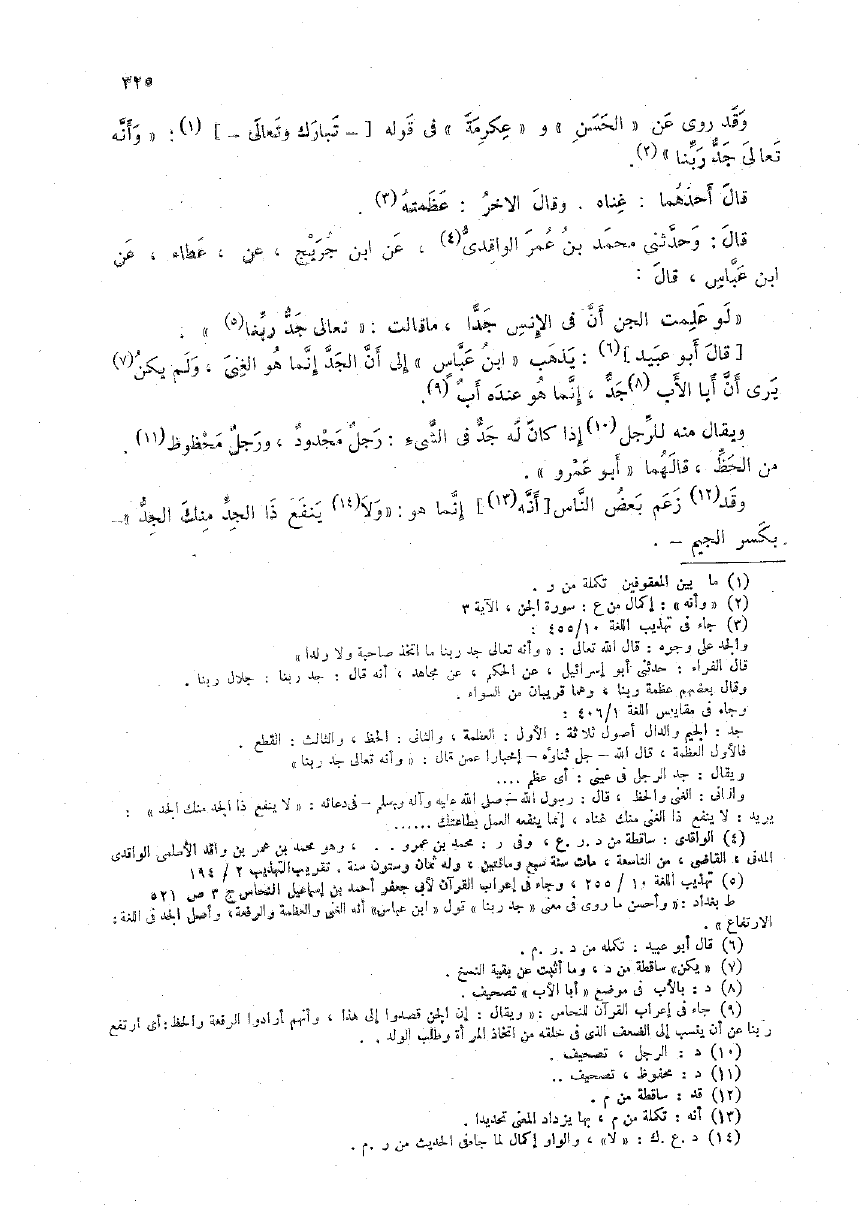 ٣٢٥
وَقَد روى عَن « الحَسَنِ » و « عِكرِمَةَ » فى قَوله [ – تَبارَك وتَعالَى – ] (١) : « وَأَنَّه
تَعالىَ جَدُّ رَبِّنا » (٢).
قالَ أَحدُهُما : غِناه . وقالَ الاخرُ : عَظَمتهُ (٣) .
قالَ : وَحدَّثنى محمَد بنُ عُمرَ الواقِدىُّ (٤) ، عَن ابن جُرَيْجٍ ، عن ، عَطاء ، عَن
ابن عَبَّاسٍ ، قالَ :
« لَو عَلِمت الجن أَنَّ فى الإِنسِ جَدًّا ، ماقالت : « تعالى جَدُّ ربِّنا (٥) » .
[ قالَ أَبو عبَيد ] (٦) : يَذهَب « ابنُ عَبَّاسٍ » إلى أَنَّ الجَدَّ إِنَّما هُو الغِنىَ ، وَلَم يكنُ (٧)
يَرى أَنَّ أَبا الأَب (٨) جَدٌّ ، إنَّما هُو عنده أَبٌ (٩).
ويقال منه للرِّجل (١٠) إذا كانَ لَه جَدٌّ فى الشَّىءِ : رَجلٌ مَجْدودٌ ، ورَجلٌ مَحْظوظ (١١) .
من الحَظِّ ، قالَهُما « أَبو عَمْرو » .
وقَد (١٢) زَعَم بَعضُ النَّاس [ أَنَّه (١٣) ] إنَّما هو : « وَلاَ (١٤) يَنفَعَ ذَا الجِدِّ مِنكَ الجِدُّ » –
بكَسر الجيم – .
(١) ما بين المعقوفين تكملة من ر .
(٢) « وأنه » : إكمال من ع : سورة الجن ، الآية ٣
(٣) جاء فى تهذيب اللغة ١٠/٤٥٥ :
والجد على وجوه : قال الله تعالى : « وأنه تعالى جد ربنا ما اتخذ صاحبة ولا ولدا »
قال الفراء : حدثنى أبو إسرائيل ، عن الحكم ، عن مجاهد ، أنه قال : جد ربنا : جلال ربنا .
وقال بعضهم عظمة ربنا ، وهما قريبان من السواء .
وجاء فى مقاييس اللغة ١/٤٠٦ :
جد : الجيم والدال أصول ثلاثة : الأول : العظمة ، والثانى : الحظ ، والثالث : القطع .
فالأول العظمة ، قال الله – جل ثناؤه – إخبارا عمن قال : « وأنه تعالى جد ربنا »
ويقال : جد الرجل فى عينى : أى عظم ....
والثانى : الغنى والحظ ، قال : رسول الله – صلى الله عليه وآله وسلم – فى دعائه : « لا ينفع ذا الجد منك الجد » :
يريد : لا ينفع ذا الغنى منك غناه ، إنما ينفعه العمل بطاعتك ......
(٤) الواقدى : ساقطة من د . ر . ع ، وفى ر : محمد بن عمرو . . ، وهو محمد بن عمر بن واقد الأسلمى الواقدى
المدنى ، القاضى ، من التاسعة ، مات سنة سبع ومائتين ، وله ثمان وستون سنة . تقريب التهذيب ٢ / ١٩٤
(٥) تهذيب اللغة ١٠ / ٢٥٥ ، وجاء فى إعراب القرآن لأبى جعفر أحمد بن إسماعيل النحاس ج ٣ ص ٥٢١
ط بغداد : « وأحسن ما روى فى معنى « جد ربنا » قول « ابن عباس » أنه الغنى والعظمة والرفعة ، وأصل الجد فى اللغة :
الارتفاع » .
(٦) قال أبو عبيد : تكمله من د . ر . م .
(٧) « يكن » ساقطة من د ، وما أثبت عن بقية النسخ .
(٨) د : بالأب فى موضع « أبا الأب » تصحيف .
(٩) جاء فى إعراب القرآن للنحاس : « ويقال : إن الجن قصدوا إلى هذا ، وأنهم أرادوا الرفعة والحظ : أى ارتفع
ربنا عن أن ينسب إلى الضعف الذى فى خلقه من اتخاذ المرأة وطلب الولد . .
(١٠) د : الرجل ، تصحيف .
(١١) د : محفوظ ، تصحيف ..
(١٢) قد : ساقطة من م .
(١٣) أنه : تكملة من م ، بها يزداد المعنى تحديدا .
(١٤) د . ع . ك : « لا » ، والواو إكمال لما جاء فى الحديث من ر . م .